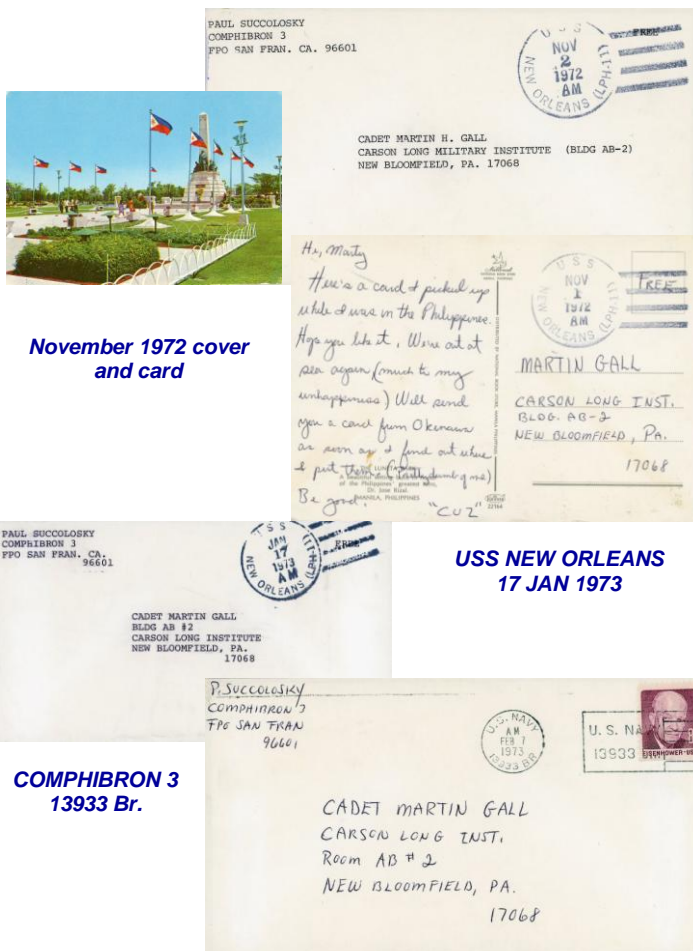 PAUL SUCCOLOSKY
COMPHIBRON 3
FPO SAN FRAN. CA. 96601
USS
NOV
2
1972
AM
NEW ORLEANS (LPH-11)
FREE
CADET MARTIN H. GALL
CARSON LONG MILITARY INSTITUTE (BLDG AB-2)
NEW BLOOMFIELD, PA. 17068
November 1972 cover
and card
Hi, Marty
Here's a card I picked up
while I was in the Philippines.
Hope you like it. We're out at
sea again (much to my
unhappiness) Will send
you a card from Okinawa
as soon as I find out where
I put them.
Be good.
"CUZ"
of the Philippines' greatest hero,
Dr. Jose Rizal.
MANILA, PHILIPPINES
DISTRIBUTED BY NATIONAL BOOK STORE, MANILA PHILIPPINES
USS
NOV
1
1972
AM
NEW ORLEANS (LPH-11)
FREE
MARTIN GALL
CARSON LONG INST.
BLDG. AB-2
NEW BLOOMFIELD, PA.
17068
USS NEW ORLEANS
17 JAN 1973
PAUL SUCCOLOSKY
COMPHIBRON 3
FPO SAN FRAN. CA.
96601
USS
JAN
17
1973
AM
NEW ORLEANS (LPH-11)
FREE
CADET MARTIN GALL
BLDG AB #2
CARSON LONG INSTITUTE
NEW BLOOMFIELD, PA.
17068
COMPHIBRON 3
13933 Br.
P. SUCCOLOSKY
COMPHIBRON 3
FPO SAN FRAN
96601
U.S. NAVY
AM
FEB 7
1973
13933 BR
U. S. NA
13933
EISENHOWER-US
CADET MARTIN GALL
CARSON LONG INST.
Room AB # 2
NEW BLOOMFIELD, PA.
17068